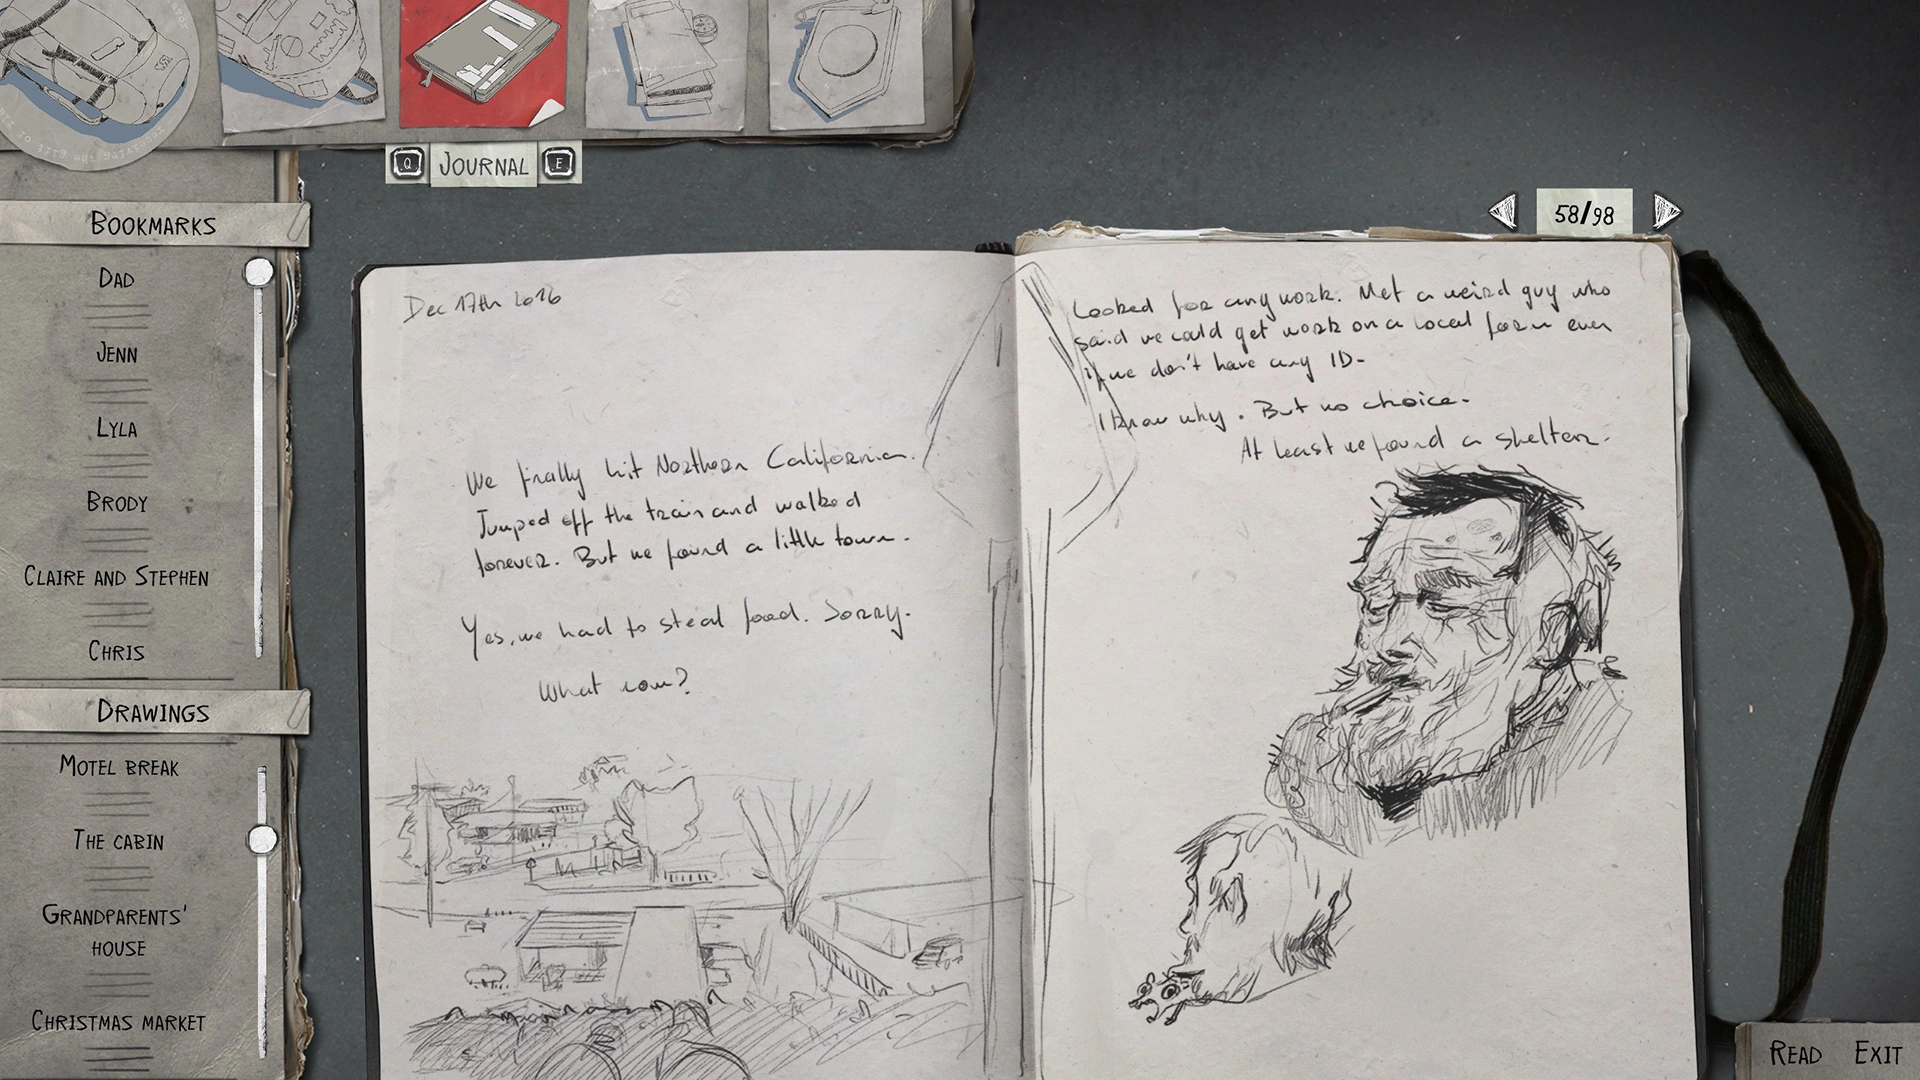 Q JOURNAL E
BOOKMARKS
DAD
JENN
LYLA
BRODY
CLAIRE AND STEPHEN
CHRIS
DRAWINGS
MOTEL BREAK
THE CABIN
GRANDPARENTS'
HOUSE
CHRISTMAS MARKET
58/98
Dec 17th 2016
We finally hit Northern California.
Jumped off the train and walked
forever. But we found a little town.
Yes, we had to steal food. Sorry.
What now?
Looked for any work. Met a weird guy who
said we could get work on a local farm even
if we don't have any ID.
I know why. But no choice.
At least we found a shelter.
READ EXIT